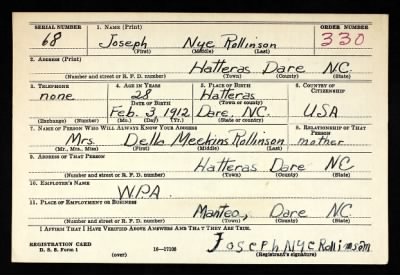 SERIAL NUMBER 1. NAME (Print) ORDER NUMBER
68 Joseph Nye Rollinson 330
(First) (Middle) (Last)
2. ADDRESS (Print)
Hatteras Dare N.C.
(Number and street or R. F. D. number) (Town) (County) (State)
3. TELEPHONE 4. AGE IN YEARS 5. PLACE OF BIRTH 6. COUNTRY OF CITIZENSHIP
none 28 Hatteras
DATE OF BIRTH
Feb. 3, 1912 Dare, N.C. USA
(Exchange) (No.) (Mo.) (Day) (Yr.) (State or country)
7. NAME OF PERSON WHO WILL ALWAYS KNOW YOUR ADDRESS 8. RELATIONSHIP OF THAT PERSON
Mrs. Della Meekins Rollinson mother
(Mr., Mrs., Miss) (First) (Middle) (Last)
9. ADDRESS OF THAT PERSON
Hatteras Dare NC
(Number and street or R. F. D. number) (Town) (County) (State)
10. EMPLOYER'S NAME
W.P.A.
11. PLACE OF EMPLOYMENT OR BUSINESS
Manteo, Dare NC
(Number and street or R. F. D. number) (Town) (County) (State)
I AFFIRM THAT I HAVE VERIFIED ABOVE ANSWERS AND THAT THEY ARE TRUE.
Joseph Nye Rollinson
REGISTRATION CARD
D. S. S. Form 1 (over) 16—17105 (Registrant's signature)